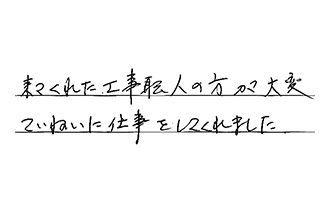 来てくれた工事職人の方が大変
ていねいに仕事をしてくれました